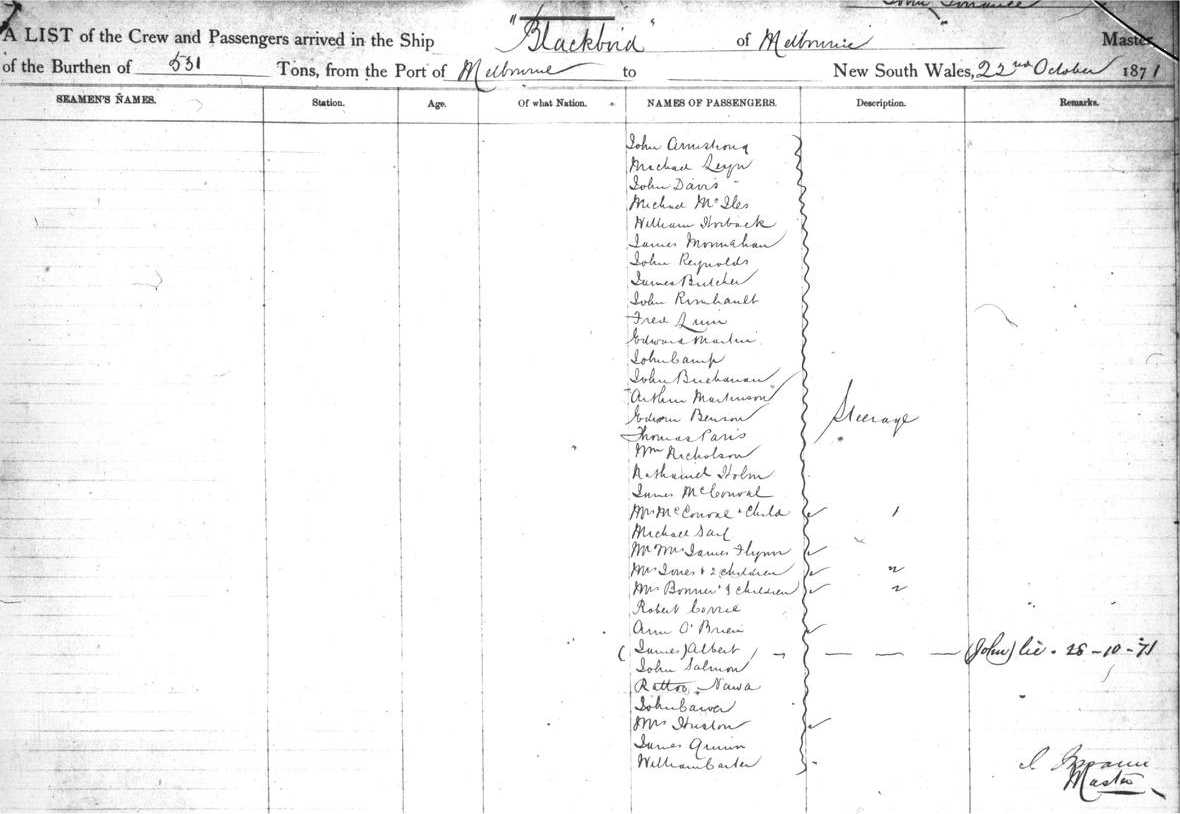 A LIST of the Crew and Passengers arrived in the Ship "Blackbird" of Melbourne Master
of the Burthen of 531 Tons, from the Port of Melbourne to New South Wales, 22nd October 1871
SEAMEN'S NAMES. Station. Age. Of what Nation. NAMES OF PASSENGERS. Description. Remarks.
John Armstrong
Michael
John Davis
Michael McIles
William Horback
James Monnahan
John Reynolds
James Butcher
John Rimbault
Fred Quin
Edward Martin
John Camp
John Buchanan
Arthur Martinson
Edwin Benson Steerage
Thomas Paris
Wm Nicholson
Nathaniel Holm
James McConval
Mrs McConval & Child 1
Michael
Mr Mrs James Flynn
Mrs Jones & 2 children 2
Mrs Bonner & children 2
Robert Corrie
Ann O'Brien
(James) Albert (John) lic. 28-10-71
John Salmon
Rattoo Nawa
John Carver
Mrs Huston
James Quinn
William Carter
Master